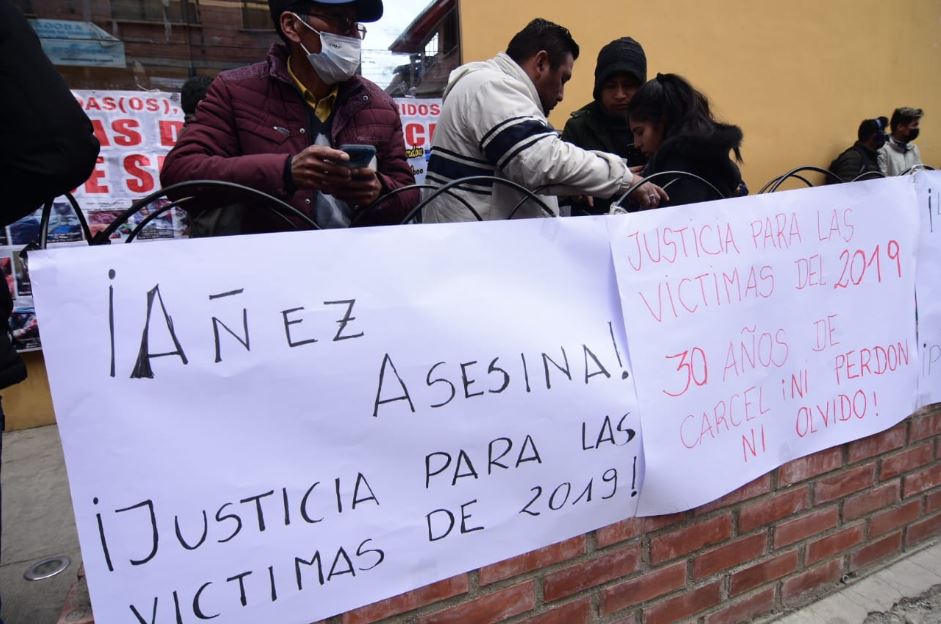 DAS(OS),
RIDOS
AS D
CE
E SE
¡AÑEZ
ASESINA!
¡JUSTICIA PARA LAS
VICTIMAS DE 2019!
JUSTICIA PARA LAS
VÍCTIMAS DEL 2019
30 AÑOS DE
CARCEL ¡NI PERDON
NI OLVIDO!
¡P